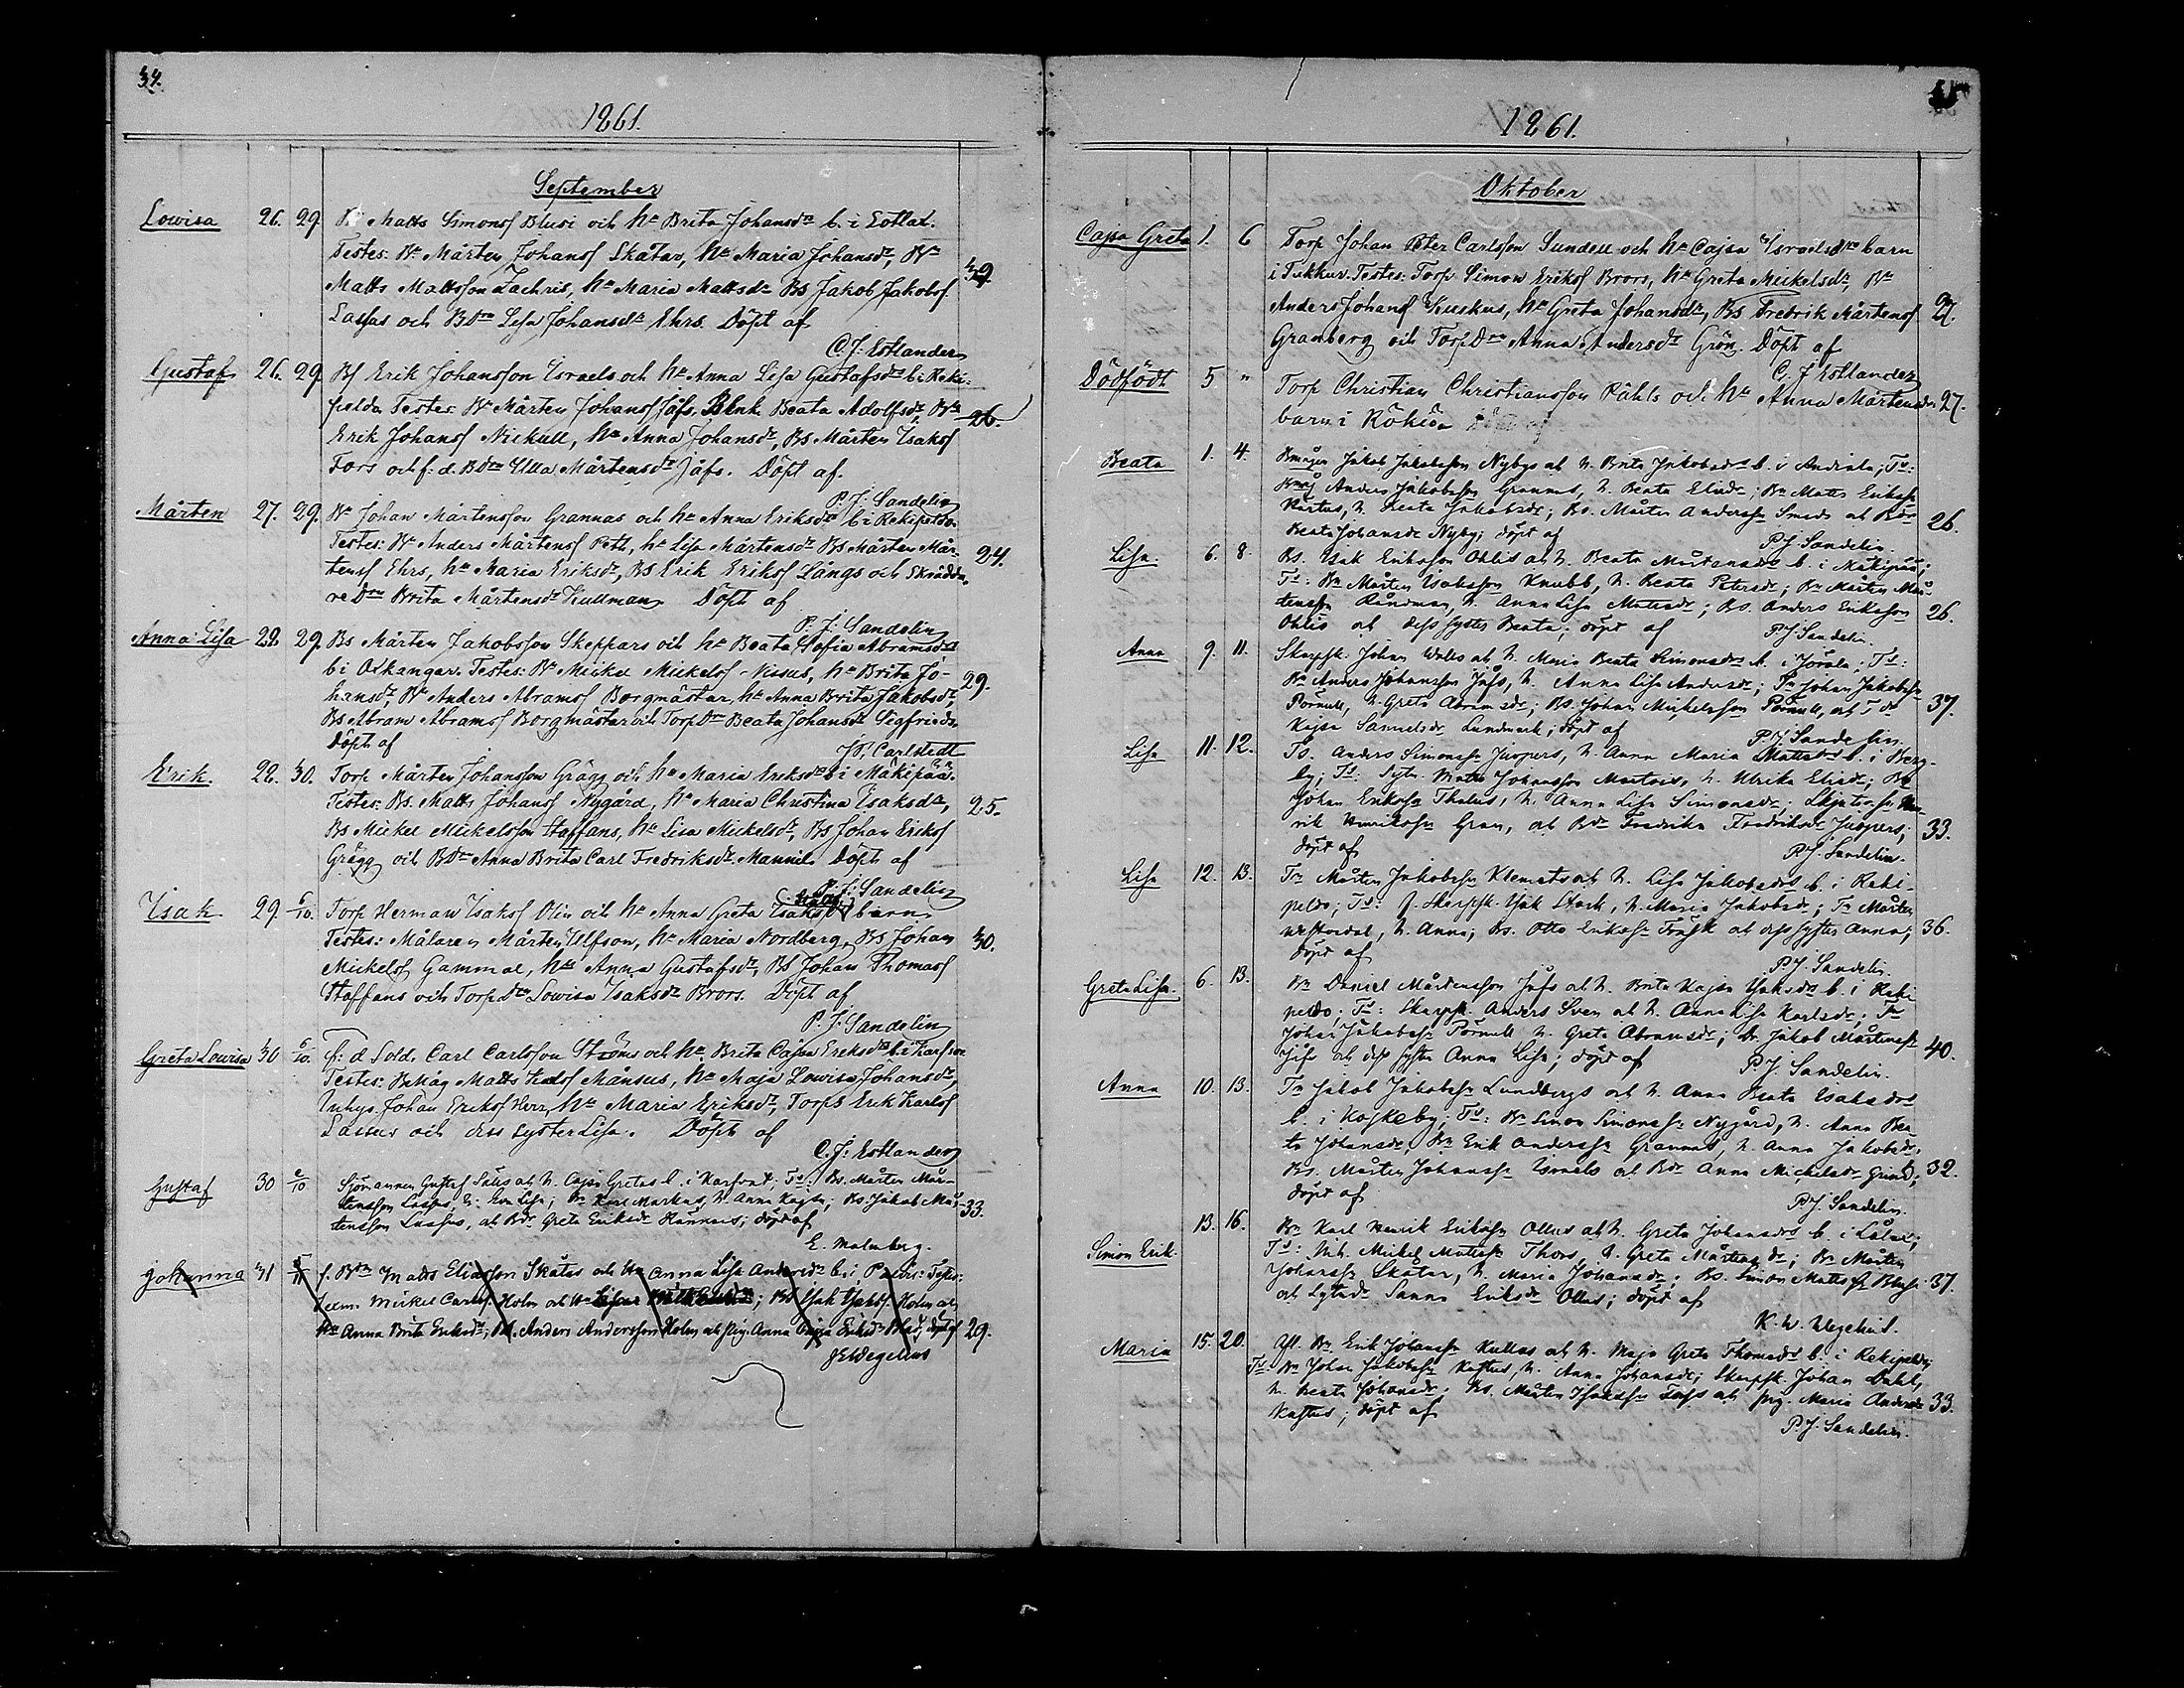 34.
1861.
September
Lowisa 26. 29. Bs Matts Simonsf Blusi och hu Brita Johansdr b. i Lotlax.
Testes: Bn Mårten Johansf Skåtar, hu Maria Johansdr, Bn
Matts Mattsson Zachris, hu Maria Mattsdr Bs Jakob Jakobsf 39.
Lassas och BDrn Lisa Johansdr Ehrs. Döpt af
C. J: Estlander
Gustaf 26. 29. Bs Erik Johansson Israels och hu Anna Lisa Gustafsdr b. i Reki-
pelda Testes: Bn Mårten Johansf Jåfs, BEnk. Beata Adolfsdr, Bn 26.
Erik Johansf Nickull, hu Anna Johansdr, Bs Mårten Isaksf
Fors och f: d. BDrn Ulla Mårtensdr Jåfs. Döpt af.
P. J: Sandelin
Mårten 27. 29. Bn Johan Mårtensson Grannas och hu Anna Eriksdr b. i Rekipeldo.
Testes: Bn Anders Mårtensf Peth, hu Lisa Mårtensdr Bs Mårten Mår- 24.
tensf Ehrs, hu Maria Eriksdr, Bs Erik Eriksf Långs och Skrädda-
re Drn Brita Mårtensdr Kullman. Döpt af
P. J: Sandelin
Anna Lisa 28. 29. Bs Mårten Jakobsson Skeppars och hu Beata Sofia Abramsdr
b i Oxkangar. Testes: Bn Mickel Mickelsf Nissus, hu Brita Jo- 29.
hansdr, Bn Anders Abramsf Borgmästar, hu Anna Brita Jakobsdr,
Bs Abram Abramsf Borgmästar och Torp Drn Beata Johansdr Sigfrieds.
Döpt af
J P. Carlstedt
Erik. 28. 30. Torp Mårten Johansson Grägg och hu Maria Eriksdr b i Mäkipää.
Testes: Bs. Matts Johansf Nygård, hu Maria Christina Isaksdr, 25.
Bs Mickel Mickelsson Staffans, hu Lisa Mickelsdr, Bs Johan Eriksf
Grägg och BDrn Anna Brita Carl Fredriksdr Mannil. Döpt af
P. J: Sandelin
Isak 29. 6/10. Torp Herman Isaksf Olin och hu Anna Greta Isaksdr barn
Testes: Målaren Mårten Ulfson, hu Maria Nordberg, Bs Johan 30.
Mickelsf Gammal, hu Anna Gustafsdr, Bs Johan Thomasf
Staffans och Torp Drn Lowisa Isaksdr Brors. Döpt af
P. J: Sandelin
Greta Lowisa 30 6/10. f: d Sold. Carl Carlsson Ströms och hu Brita Cajsa Eriksdr b. i Karfsor
Testes: BMåg Matts Månsus, hu Maja Lowisa Johansdr,
Inhys. Johan Eriksf Herr, hu Maria Eriksdr, TorpS Erik Karlsf
Lassus och dess syster Lisa. Döpt af
C. J: Estlander
Gustaf 30 6/10 Sjömannen Gustaf Salus och h. Cajsa Gretas b. i Karfsat. Ts: Bs. Mårten Mår-
tensson Lassus, h: Eva Lisa; Bn Karl Markus, h. Anna Kajsa; Bs. Jakob Mår- 33.
tensson Lassus, och Bdr. Greta Eriksdr Hannus; döpt af
E. Malmberg.
Johanna 31 5/11 f. Bdn Matts Eliasson Skåtas och hu Anna Lisa Andersdr b. i P Testes:
Mickel Carlsf. Holm och hu; Bs Isak Isaksf. Holm och
hu Anna Brita Eriksdr; Anders Andersson Holm och pig. Anna Cajsa Eriksdr döpt af 29.
JEWegelius
1861.
Oktober
Cajsa Greta 1. 6 Torp Johan Peter Carlsson Sundell och hu Cajsa Israelsdr barn
i Tukkur. Testes: Torp Simon Eriksf Brors, hu Greta Mickelsdr, Bn
Anders Johansf Kuskus, hu Greta Johansdr, Bs Fredrik Mårtensf 27.
Granberg och Torp Drn Anna Andersdr Grön. Döpt af
C. J Estlander
Dödfödt 5 " Torp Christian Christiansson Påhls och hu Anna Mårtensdr 27.
barn i Rökiö
Beata 1. 4. Bmågen Jakob Jakobsson Nybys och h. Brita Jakobsdr b. i Andiala; Ts:
Bmåg Anders Jakobsson Grannas, h. Beata Elisdr; Bn Matts Eriksf
Kastus, h. Beata Jakobsdr; Bs. Mårten Andersf Smeds och Bdr 26.
Beata Johansdr Nyby; döpt af
P J Sandelin.
Lisa. 6. 8. Bs. Isak Eriksson Ohlis och h. Beata Mårtensdr b. i Mäkipää;
Ts: Bn Mårten Isaksson Knubb, h. Beata Petersdr; Bn Mårten Mår-
tensf Råndman, h. Anna Lisa Mattsdr; Bs. Anders Eriksson 26.
Ohlis och dess syster Beata; döpt af
P J Sandelin.
Anna 9. 11. Skarpsk. Johan Walls och h. Maria Beata Simonsdr b. i Jörala; Ts:
Bn Anders Johansson Jåfs, h. Anna Lisa Andersdr; Tn Johan Jakobsf
Pörnull, h. Greta Abramsdr; Bs. Johan Mickelsson Pörnull, och T. dr 37.
Kajsa Samuelsdr Lundmark; döpt af
P. J Sandelin.
Lisa 11. 12. Ts. Anders Simonsf Juspers, h. Anna Maria Mattsdr b. i Berg-
by; Ts: Sytn. Matts Johansson Martois, h. Ulrika Elisdr; Bs
Johan Eriksf Thalus, h. Anna Lisa Simonsdr; Hen-
rik Henriksf Gran, och Bdr Fredrika Fredriksdr Juspers; 33.
döpt af
P. J. Sandelin.
Lisa 12. 13. Tn Mårten Jakobsf Klemets och h. Lisa Jakobsdr b. i Reki-
peldo; Ts: f. Skarpsk. Isak Stark, h. Maria Jakobsdr; Tn Mårten
Westerdal, h. Anna; Bs. Otto Eriksf Träsk och dess syster Anna; 36.
döpt af
P J. Sandelin.
Greta Lisa. 6. 13. Bn Daniel Mårtensson Jåfs och h. Brita Kajsa Isaksdr b. i Reki
peldo; Ts: Skarpsk. Anders Sven och h. Anna Lisa Karlsdr; Tn
Johan Jakobsf Pörnull h. Greta Abramsdr; Bs. Jakob Mårtensf 40.
Jåfs och dess syster Anna Lisa; döpt af
P J. Sandelin.
Anna 10. 13. Tn Jakob Jakobsf Lundbergs och h. Anna Beata Isaksdr
b. i Koskeby; Ts: Bn Simon Simonsf Nygård, h. Anna Bea-
ta Johansdr; Bn Erik Andersf Grannas, h. Anna Jakobsdr;
Bs. Mårten Johansf Israels och Bdr Anna Mickelsdr Grind; 32.
döpt af
P. J. Sandelin.
Simon Erik. 13. 16. Bn Karl Henrik Eriksf Ollus och h. Greta Johansdr b. i Lålax;
Ts: Inh. Mickel Mattsf Thors, h. Greta Mårtensdr; Bn Mårten
Johansf Skåtar, h. Maria Johansdr; Bs. Simon Mattsf Blusi 37.
och Sytndr Sanna Eriksdr Ollus; döpt af
K. W. Wegelius.
Maria 15. 20. Afl. Bn Erik Johansf Kullas och h. Maja Greta Thomasdr b. i Rekipeldo;
Ts: Bn Johan Jakobsf Kastus, h. Anna Johansdr; Skarpsk. Johan Dahl,
h. Beata Johansdr; Bs. Mårten Isaksf Fors och pig. Maria Andersdr 33.
Kastus; döpt af
P. J. Sandelin.